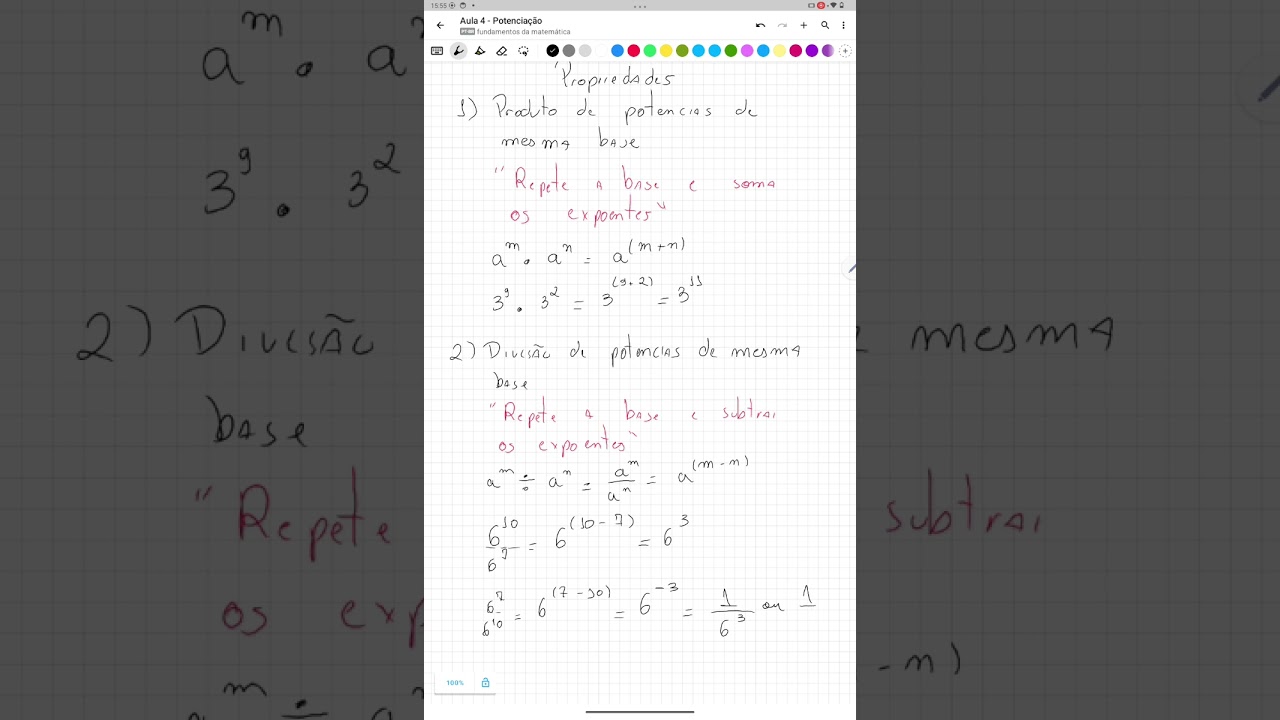 15:55
Aula 4 - Potenciação
PT-BR fundamentos da matemática
Propriedades
1) Produto de potencias de
mesma base
"Repete a base e soma
os expoentes"
a^m . a^n = a^(m+n)
3^9 . 3^2 = 3^(9+2) = 3^11
2) Divisão de potencias de mesma
base
"Repete a base e subtrai
os expoentes"
a^m ÷ a^n = a^m/a^n = a^(m-n)
6^10/6^7 = 6^(10-7) = 6^3
6^7/6^10 = 6^(7-10) = 6^-3 = 1/6^3 ou 1
100%